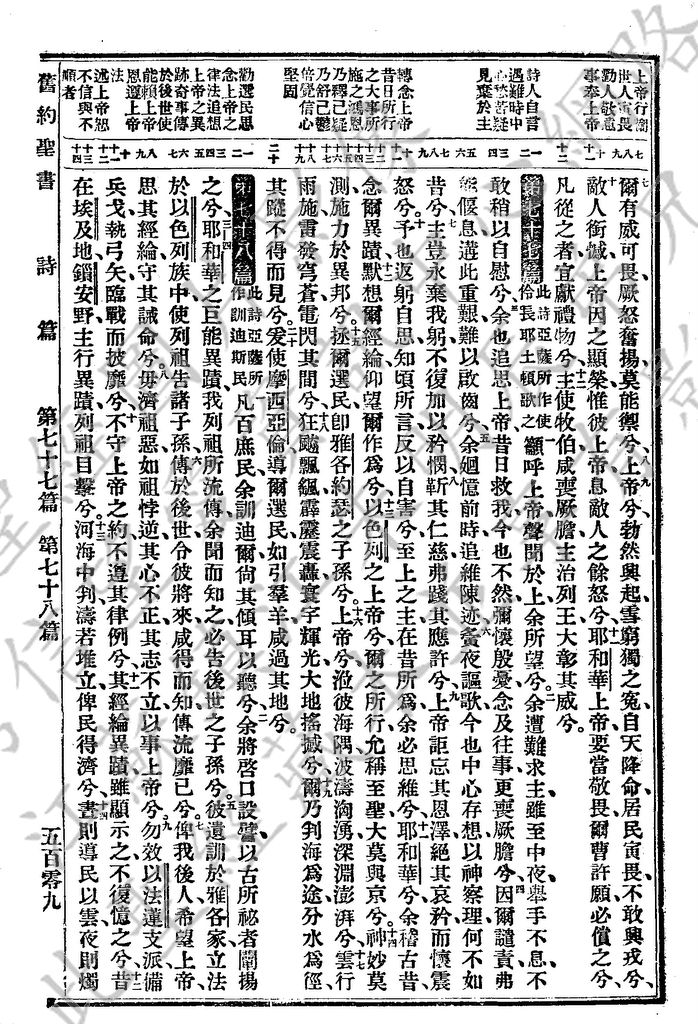 舊約聖書 詩篇 第七十七篇 第七十八篇 五百零九
上帝行審
世人寅畏
勸人敬虔
事奉上帝
詩人自言
遇難時中
心愁苦疑
見棄於主
轉念上帝
昔日所行
之大事所
施之鴻恩
乃釋已疑
乃舒己鬱
倍覺信心
堅固
勸選民思
念上帝之
律法追想
上帝之異
跡奇事傳
於後世使
能賴上帝
恩遵上帝
法
述上帝怒
不信與不
順者
爾有威可畏厥怒奮揚莫能禦兮上帝兮勃然興起雪窮獨之寃自天降命居民寅畏不敢興戎兮
敵人銜憾上帝因之顯榮惟彼上帝息敵人之餘怒兮耶和華上帝要當敬畏爾曹許願必償之兮
凡從之者宜獻禮物兮主使牧伯咸喪厥膽主治列王大彰其威兮
第七十七篇 此詩亞薩所作使伶長耶土頓歌之 籲呼上帝聲聞於上余所望兮余遭難求主雖至中夜舉手不息不
敢稍以自慰兮余也追思上帝昔日救我今也不然彌懷殷憂念及往事更喪厥膽兮因爾譴責弗
能偃息遘此重艱難以啟齒兮余廻憶前時追維陳迹夤夜謳歌今也中心存想以神察理何不如
昔兮主豈永棄我躬不復加以矜憫靳其仁慈弗踐其應許兮上帝詎忘其恩澤絕其哀矜而懷震
怒兮予也返躬自思知頃所言反以自害兮至上之主在昔所為余必思維兮耶和華兮余稽古昔
念爾異蹟默想爾經綸仰望爾作為兮以色列之上帝兮爾之所行允稱至聖大莫與京兮神妙莫
測施力於異邦兮拯爾選民卽雅各約瑟之子孫兮上帝兮涖彼海隅波濤洶湧深淵澎湃兮雲行
雨施雷發穹蒼電閃其間兮狂飈飄颻霹靂震轟寰宇輝光大地搖撼兮爾乃判海為途分水為徑
其蹤不得而見兮爰使摩西亞倫導爾選民如引羣羊咸過其地兮
第七十八篇 此詩亞薩所作訓迪斯民 凡百庶民余訓迪爾尙其傾耳以聽兮余將啓口設譬以古所祕者闡揚
之兮耶和華之巨能異蹟我列祖所流傳余聞而知之必告後世之子孫兮彼遺訓於雅各家立法
於以色列族中使列祖告諸子孫傳於後世兮彼將來咸得而知傳流靡已兮俾我後人希望上帝
思其經綸守其誡命兮毋濟祖惡如祖悖逆其心不正其志不立以事上帝兮勿效以法蓮支派備
兵戈執弓矢臨戰而披靡兮不守上帝之約不遵其律例兮其經綸異蹟雖顯示之不復憶之兮昔
在埃及地鎖安野主行異蹟列祖目擊兮河海中判濤若堆立俾民得濟兮晝則導民以雲夜則燭